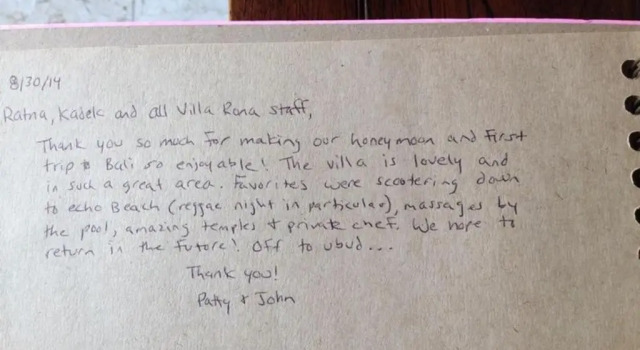 8/30/14
Ratna, Kadek and all Villa Rona staff,
Thank you so much for making our honeymoon and first
trip to Bali so enjoyable! The villa is lovely and
in such a great area. Favorites were scootering down
to echo Beach (reggae night in particular), massages by
the pool, amazing temples + private chef. We hope to
return in the future! Off to ubud...
Thank you!
Patty + John